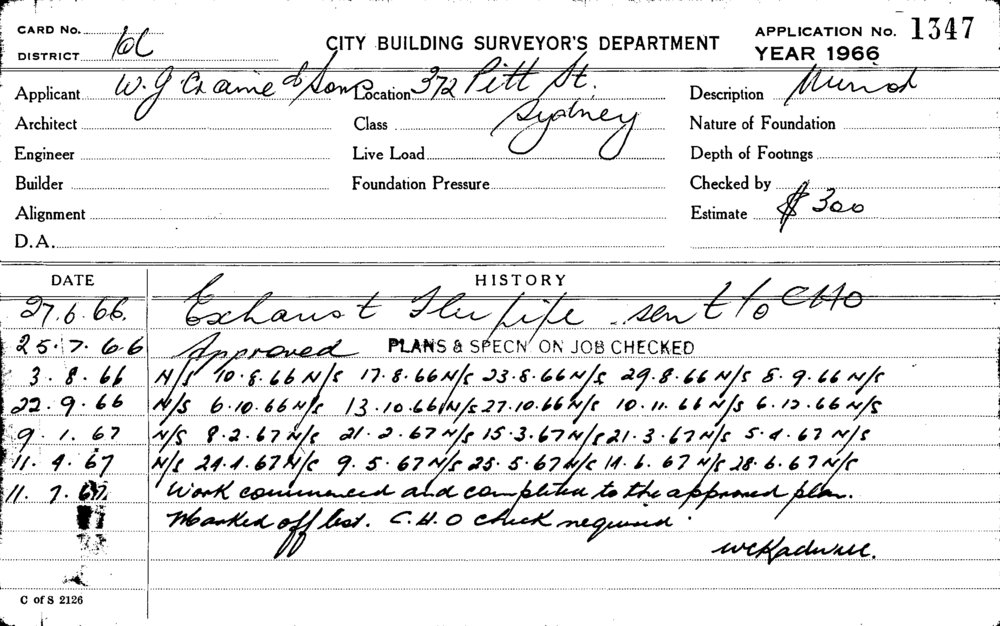 CARD No.
DISTRICT
CITY BUILDING SURVEYOR'S DEPARTMENT
APPLICATION No. 1347
YEAR 1966
Applicant W. G Craine & Sons Location 372 Pitt St. Description
Architect Class Sydney Nature of Foundation
Engineer Live Load Depth of Footings
Builder Foundation Pressure Checked by
Alignment Estimate $300
D.A.
DATE HISTORY
27.6.66. Exhaust Flu pipe sent to CHO
25.7.66 Approved PLANS & SPECN ON JOB CHECKED
3.8.66 N/S 10.8.66 N/S 17.8.66 N/S 23.8.66 N/S 29.8.66 N/S 8.9.66 N/S
22.9.66 N/S 6.10.66 N/S 13.10.66 N/S 27.10.66 N/S 10.11.66 N/S 6.12.66 N/S
9.1.67 N/S 8.2.67 N/S 21.2.67 N/S 15.3.67 N/S 21.3.67 N/S 5.4.67 N/S
11.4.67 N/S 24.4.67 N/S 9.5.67 N/S 25.5.67 N/S 14.6.67 N/S 28.6.67 N/S
11.7.67. Work commenced and completed to the approved plan.
Marked off list. C.H.O check required.
C of S 2126